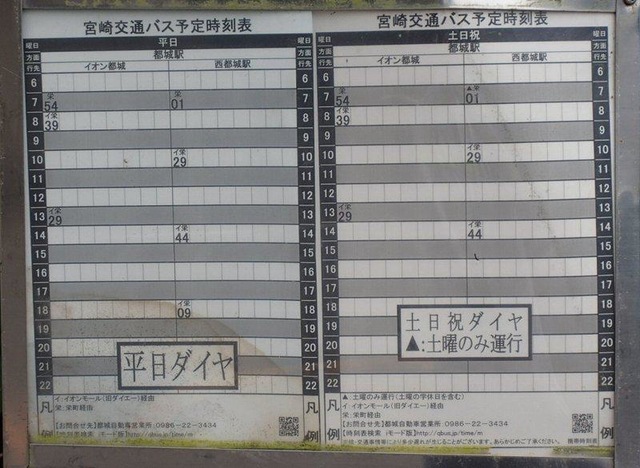 宮崎交通バス予定時刻表
曜日 平日 曜日
方面 都城駅 方面
行先 イオン都城 西都城駅 行先
6 6
7 栄 54 栄 01 7
8 イ栄 39 8
9 9
10 イ栄 29 10
11 11
12 12
13 イ栄 29 13
14 イ栄 44 14
15 15
16 16
17 17
18 イ栄 09 18
19 19
20 20
21 21
22 22
平日ダイヤ
凡例
イ:イオンモール(旧ダイエー)経由
栄:栄町経由
【お問合せ先】都城自動車営業所:0986-22-3434
【時刻表検索 iモード版】http://qbus.jp/time/m
凡例
宮崎交通バス予定時刻表
曜日 土日祝 曜日
方面 都城駅 方面
行先 イオン都城 西都城駅 行先
6 6
7 栄 54 ▲栄 01 7
8 イ栄 39 8
9 9
10 イ栄 29 10
11 11
12 12
13 イ栄 29 13
14 イ栄 44 14
15 15
16 16
17 17
18 18
19 19
20 20
21 21
22 22
土日祝ダイヤ
▲:土曜のみ運行
▲:土曜のみ運行(土曜の学休日を含む)
イ:イオンモール(旧ダイエー)経由
栄:栄町経由
【お問合せ先】都城自動車営業所:0986-22-3434
【時刻表検索 iモード版】http://qbus.jp/time/m
凡例
携帯時刻表